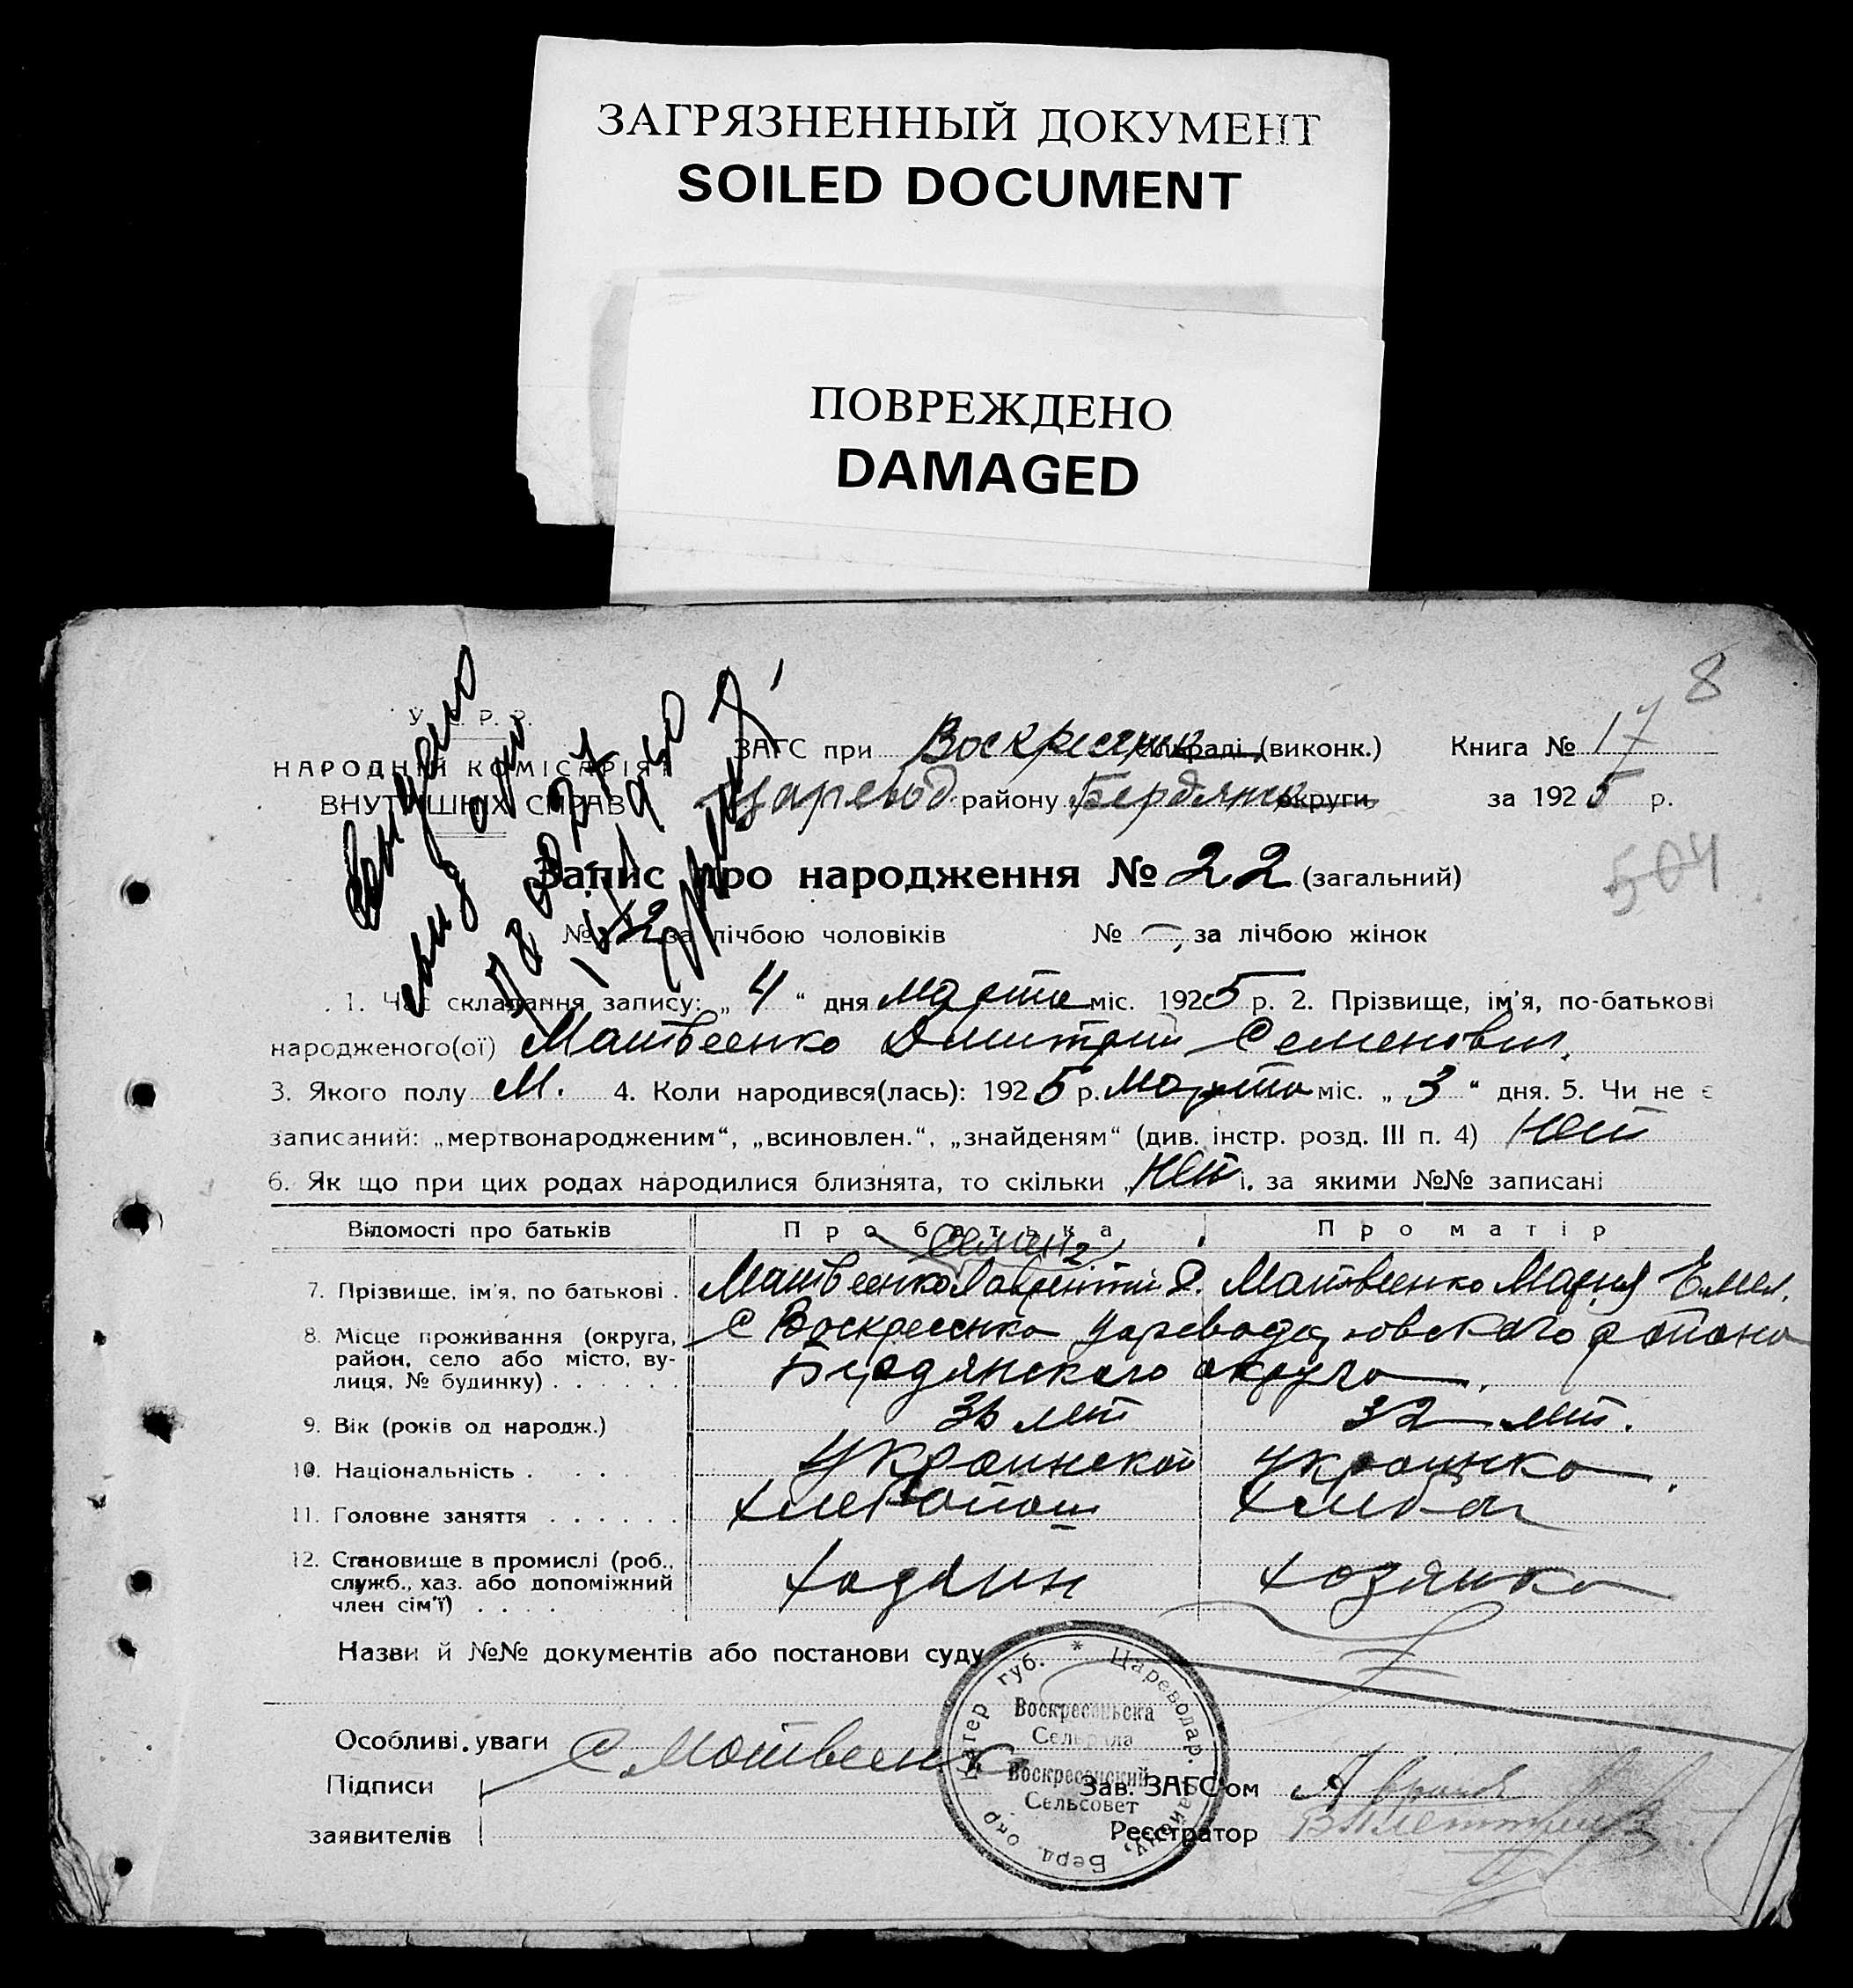 ЗАГРЯЗНЕННЫЙ ДОКУМЕНТ
SOILED DOCUMENT
ПОВРЕЖДЕНО
DAMAGED
8
У. С. Р. Р.
НАРОДНІЙ КОМІСАРІЯТ
ВНУТРІШНІХ СПРАВ
ЗАГС при Воскресенк (виконк.) Книга № 17
Царевод району Бердянск округи за 1925 р.
504
Запис про народження № 22 (загальний)
№ 12 за лічбою чоловіків № — за лічбою жінок
1. Час складання запису: „4“ дня марта міс. 1925 р. 2. Прізвище, ім'я, по-батькові
народженого(ої) Матвеенко Дмитрий Семенович
3. Якого полу М. 4. Коли народився(лась): 1925 р. марта міс. „3“ дня. 5. Чи не є
записаний: „мертвонародженим“, „всиновлен.“, „знайденям“ (див. інстр. розд. III п. 4) Нет
6. Як що при цих родах народилися близнята, то скільки „Нет і. за якими №№ записані
Відомості про батьків Про батька Про матір
Семен
7. Прізвище, ім'я, по батькові . Матвеенко Лаврентий Матвеенко Мария Емел.
8. Місце проживання (округа, район, село або місто, вулиця, № будинку) . . . . . . С Воскресенка Царевода ровского района
Бердянского округа
9. Вік (років од народж.) лет 32 лет.
10. Національність . . . . Украинской украинка
11. Головне заняття . . . . . . хлебопаш хлебоп
12. Становище в промислі (роб., служб., хаз. або допоміжний член сім'ї) . . . . хозяин хозяйка
Назви й №№ документів або постанови суду
Особливі уваги
Підписи
заявителів
С. Матвеенко
* Цареводар. району, Берд. окр. Катер губ.
Воскресеньска
Сельрада
Воскресенский
Сельсовет
Зав. ЗАГС'ом
Реєстратор